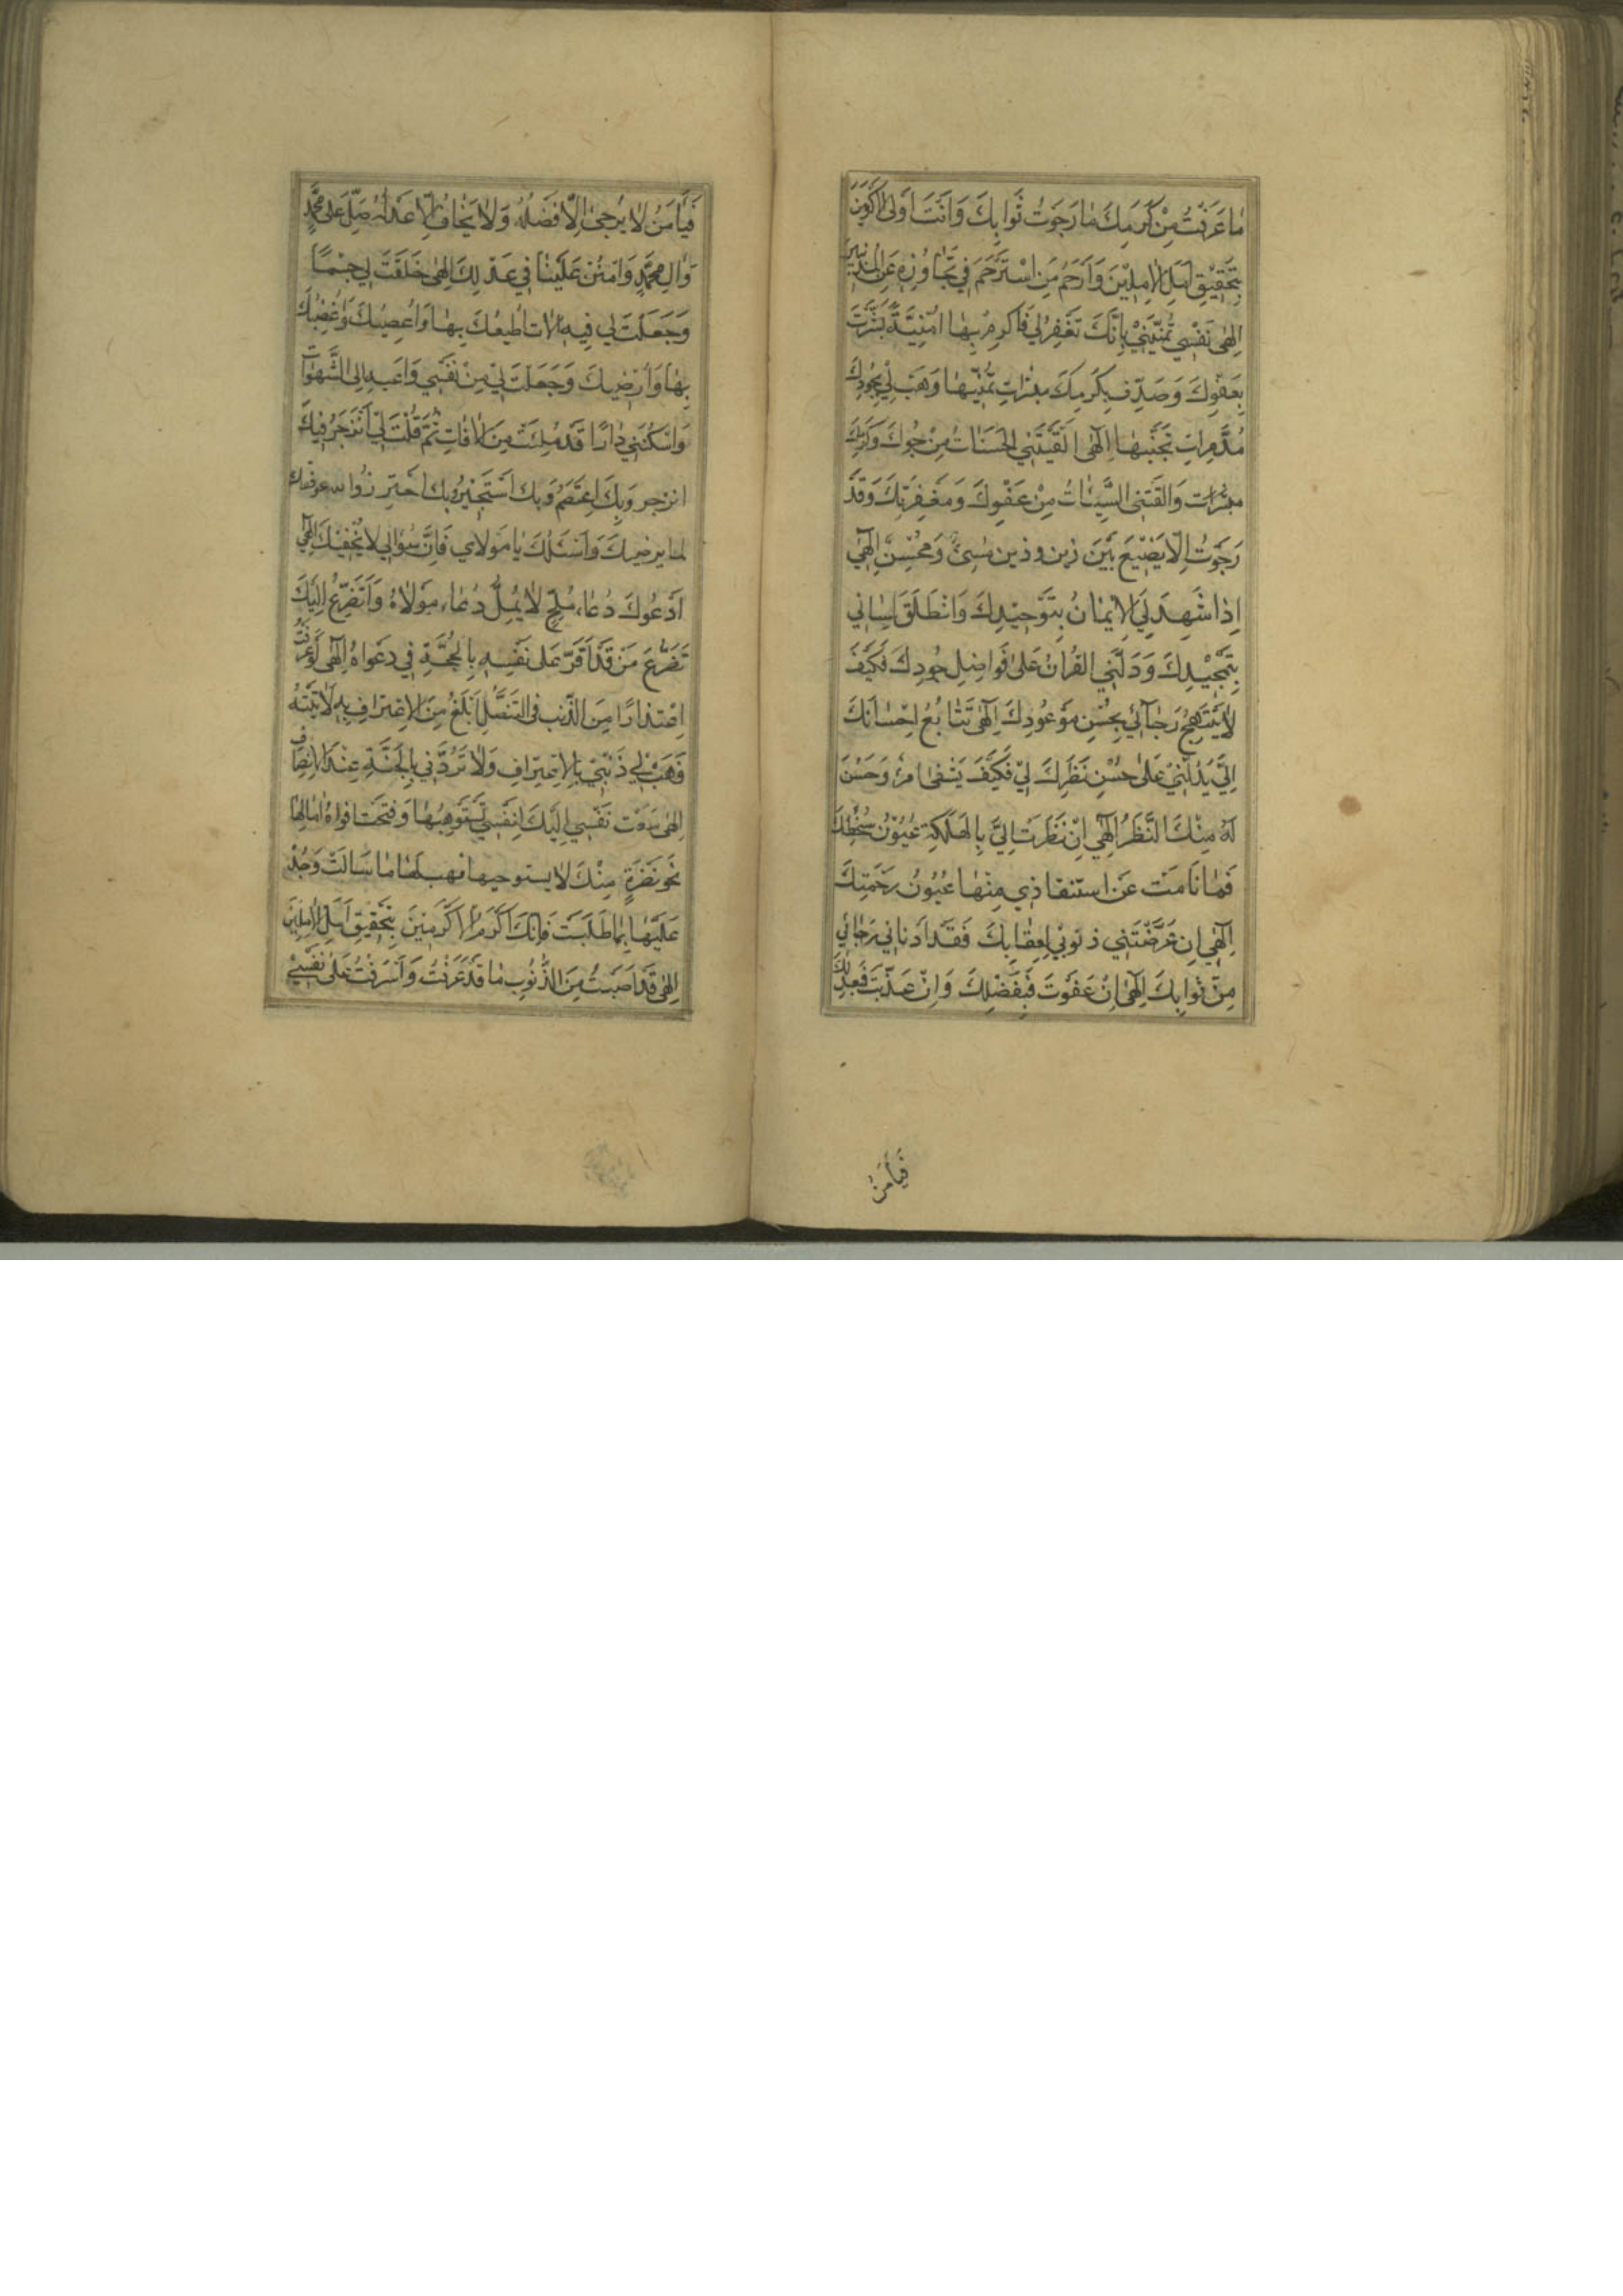 مَا عَرَفْتُ مِنْ كَرَمِكَ مَا رَجَوْتُ ثَوَابَكَ وَاَنْتَ اَوْلَى الْاَكْرَمِينَ
بِتَحْقِيْقِ اَمَلِ الْاٰمِلِيْنَ وَاَرْحَمُ مَنِ اسْتُرْحِمَ فِي تَجَاوُزِهِ عَنِ الْمُذْنِبِينَ
اِلٰهِى نَفْسِي تُمَنِّيْنِيْ بِاَنَّكَ تَغْفِرُ لِي فَاَكْرِمْ بِهَا اُمْنِيَّةً بُشِّرَتْ
بِعَفْوِكَ وَصَدِّقْ بِكَرَمِكَ مبشرات تَمَنِّيْهَا وَهَبْ لِي بِجُودِكَ
مُدَمِّرَاتِ تَجَنِّيهَا اِلٰهِى اَلْقَتْنِي الْحَسَنَاتُ مِنْ جُودِكَ وَكَرَمِكَ
وَالْقَتْنِى السَّيِّئَاتُ مِنْ عَفْوِكَ وَمَغْفِرَتِكَ وَقَدْ
رَجَوْتُ اِلَّا يَضِيْعَ بَيْنَ ذين وذين مُسِيئٌ وَمُحْسِنٌ اِلٰهِي
اِذَا شَهِدَ لِيَ الْاِيْمَانُ بِتَوْحِيْدِكَ وَانْطَلَقَ لِسَانِي
بِتَمْجِيْدِكَ وَدَلَّنِي الْقُرْاٰنُ عَلَى فَوَاضِلِ جُودِكَ فَكَيْفَ
لَا يَبْتَهِجُ رَجَائِي بِحُسْنِ مَوْعُودِكَ اِلٰهِى تَتَابُعُ اِحْسَانِكَ
اِلَيَّ يَدُلُّنِيْ عَلَى حُسْنِ نَظَرِكَ لِيْ فَكَيْفَ يَشْقَى امرؤ حَسُنَ
لَهُ مِنْكَ النَّظَرُ اِلٰهِي اِنْ نَظَرَتْ اِلَيَّ بِالْهَلَكَةِ عُيُوْنُ سُخْطِكَ
فَمَا نَامَتْ عَنِ استنقاذي مِنْهَا عُيُونُ رَحْمَتِكَ
اِلٰهِي اِنْ عَرَّضَتْنِي ذنوبي لِعِقَابِكَ فَقَدْ اَدْنَانِي رَجَائِي
مِنْ ثَوَابِكَ اِلٰهِى اِنْ عَفَوْتَ فَبِفَضْلِكَ وَاِنْ عَذَّبْتَ فَبِعَدْلِكَ
فَيَا مَنْ
فَيَا مَنْ لَا يُرْجَى اِلَّا فَضْلُهُ وَلَا يُخَافُ اِلَّا عَدْلُهُ صَلِّ عَلَى مُحَمَّدٍ
وَاٰلِ مُحَمَّدٍ وَامْنُنْ عَلَيْنَا فِي عَدْلِكَ اِلٰهِى خَلَقْتَ لِي جِسْمًا
وَجَعَلْتَ لِي فِيهِ اٰلَات اُطِيعُكَ بِهَا وَاَعْصِيْكَ وَاُغْضِبُكَ
بِهَا وَاُرْضِيكَ وَجَعَلْتَ لِيْ مِنْ نَفْسِي دَاعِيَةً اِلَى الشَّهَوَاتِ
وَاَسْكَنْتَنِي دَارًا قَدْ مُلِئَتْ مِنَ الْاٰفَاتِ ثُمَّ قُلْتَ لِي اَنْزَجِرْ فَبِكَ
انزجر وَبِكَ اَعْتَصِمُ وَبِكَ اَسْتَجِيْرُ وَبِكَ اَحْتَرِزُ
لما يرضيك وَاَسْئَلُكَ يَا مَوْلَاي فَاِنَّ سُؤَالِي لَا يُحْفِيْكَ اِلٰهِي
اَدْعُوكَ دُعَاءَ مُلِحٍّ لَا يَمَلُّ دُعَاءَ مَوْلَاهُ وَاَتَضَرَّعُ اِلَيْكَ
تَضَرُّعَ مَنْ قَدْ اَقَرَّ عَلَى نَفْسِهِ بِالْحُجَّةِ فِي دَعْوَاهُ اِلٰهِى لَوْ عَرَفْتُ
اِعْتِذَارًا مِنَ الذَّنْبِ فِى التَّنَصُّلِ اَبْلَغُ مِنَ الْاِعْتِرَافِ بِهِ لَاَتَيْتُهُ
فَهَبْ لِي ذَنْبِيْ بِالْاِعْتِرَافِ وَلَا تَرُدَّنِي بِالْخَيْبَةِ عِنْدَ الْاِنْصِرَافِ
اِلٰهِى سَعَتْ نَفْسِي اِلَيْكَ لِنَفْسِي تَسْتَوْهِبُهَا وَفَتَحَتْ اَفْوَاهَ اٰمَالِهَا
نَحْوَ نَظْرَةٍ مِنْكَ لَا يستوجبها فهب لَهَا مَا سَاَلَتْ وَجُدْ
عَلَيْهَا بِمَا طَلَبَتْ فَاِنَّكَ اَكْرَمُ الْاَكْرَمِيْنَ بِتَحْقِيْقِ اَمَلِ الْاٰمِلِيْنَ
اِلٰهِى قَدْ اَصَبْتُ مِنَ الذُّنُوبِ مَا قَدْ عَرَفْتَ وَاَسْرَفْتُ عَلَى نَفْسِيْ